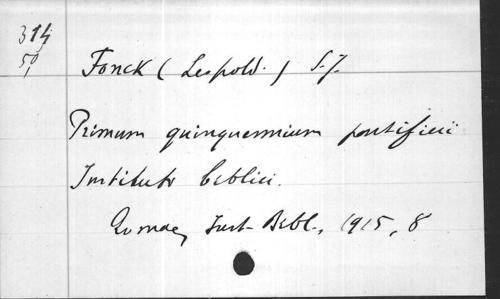 314
50,
Fonck (Leopold.) S.J.
Primum quinquennium pontificii
Instituti biblici.
Romae, Inst. Bibl., 1915, 8